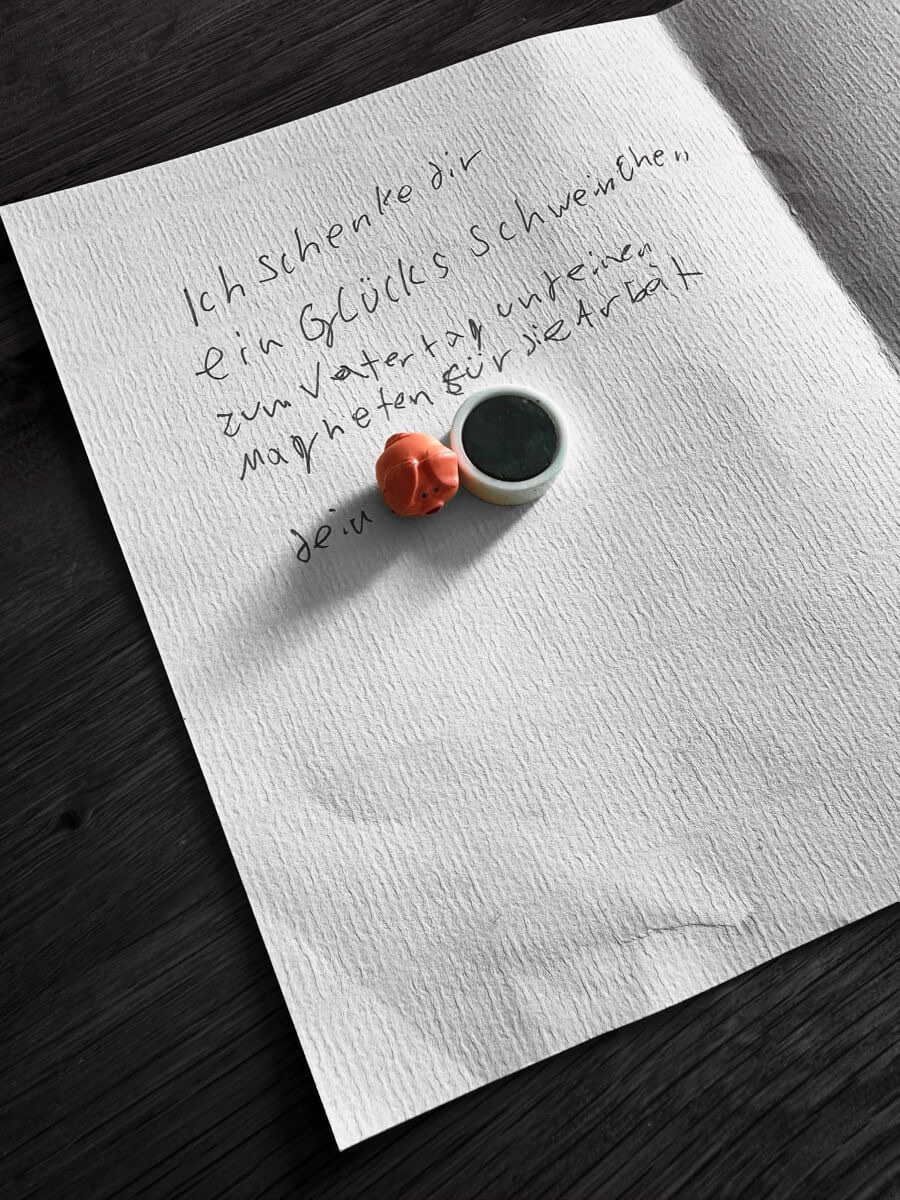 Ich schenke dir
ein Glücks schweinchen
zum Vatertag unt einen
Magneten für die Arbeit
dein